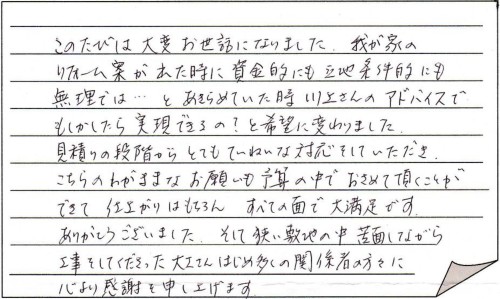 このたびは大変お世話になりました. 我が家の
リフォーム案が出た時に資金的にも立地条件的にも
無理では…とあきらめていた時 川上さんのアドバイスで
もしかしたら実現できるの?と希望に変わりました.
見積りの段階からとてもていねいな対応をしていただき.
こちらのわがままなお願いも予算の中でおさめて頂くことが
できて 仕上がりはもちろん すべての面で大満足です.
ありがとうございました. そして狭い敷地の中 苦面しながら
工事をしてくださった大工さんはじめ多くの関係者の方々に
心より感謝を申し上げます